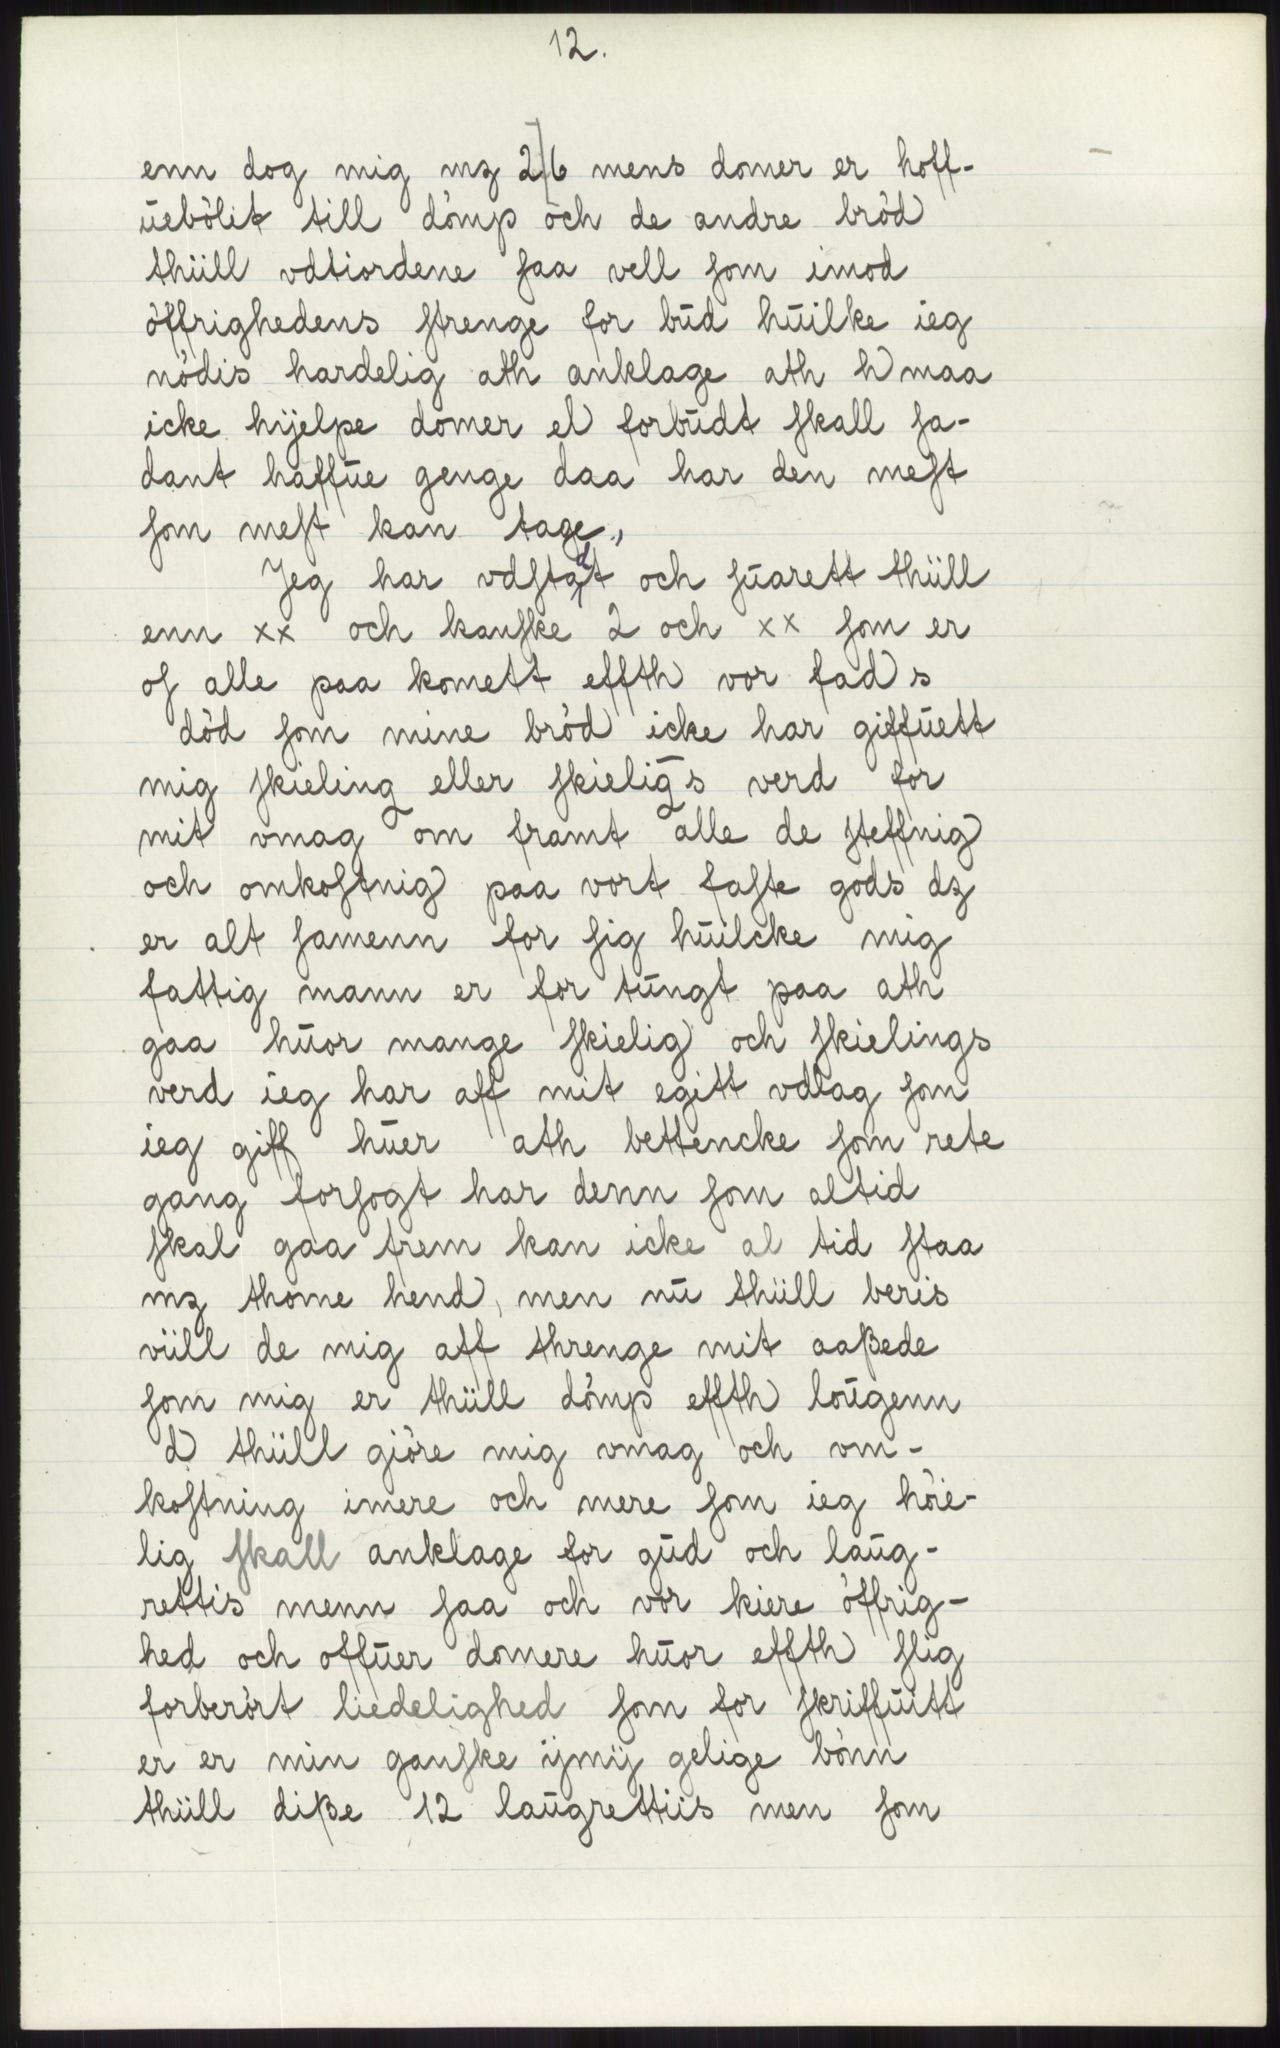 12.
enn dog mig mz 2/6 mens domer er hoff-
ūebòlit till dòmp och de andre bròd
thüll vdtiordene saa vell som imod
òffrighedens strenge for būd hūilke ieg
nòdis hardelig ath anklage ath h maa
icke hijelpe domer el forbūdt skall sa-
dant haffūe genge daa har den mest
som mest kan tage,
Jeg har vdstādt och sūarett thüll
enn xx och kanske 2 och xx som er
of alle paa komett effth vor fad s
dòd som mine bròd icke har giffūett
mig skieling eller skieliḡs verd for
mit vmag om framt alle de steffnig
och omkostnig paa vort faste gods dz
er alt samenn for sig hūilcke mig
fattig mann er for tūngt paa ath
gaa hūor mange skielig och skielings
verd ieg har aff mit egitt vdlag som
ieg giff hūer ath bettencke som rete
gang forsogt har denn som altid
skal gaa frem kan icke al tid staa
mz thome hend, men nū thüll beris
vüll de mig aff threnge mit aaßede
som mig er thüll dòmp effth loūgenn
d thüll giòre mig vmag och vm-
kostning imere och mere som ieg hòie-
lig skall anklage for gūd och laūg-
rettis menn saa och vor kiere òffrig-
hed och offūer domere hūor effth slig
forberòrt liedelighed som for skriffūitt
er er min ganske ijmij gelige bònn
thüll diße 12 laūgrettiis men som